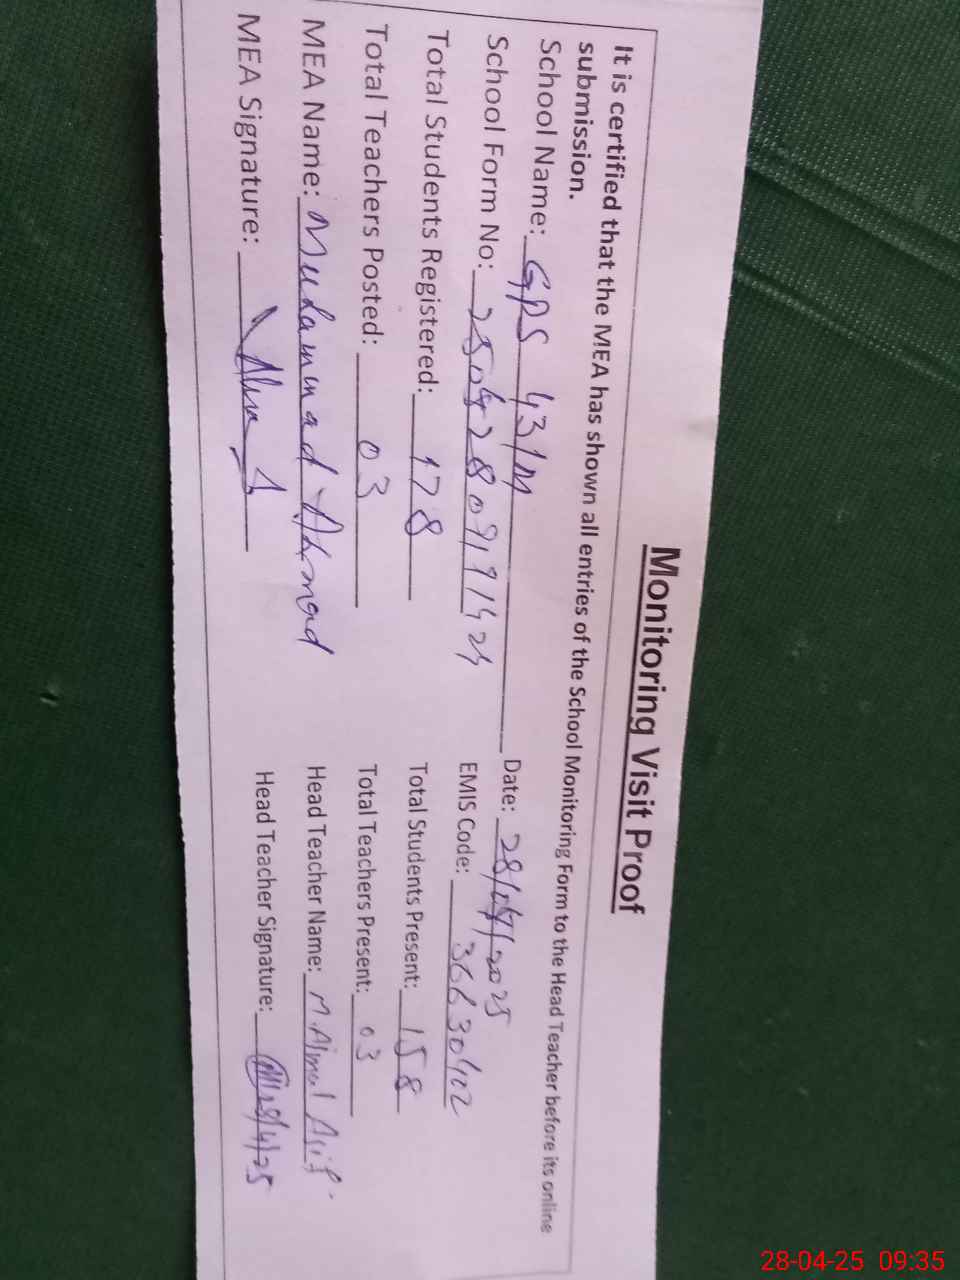 Monitoring Visit Proof
It is certified that the MEA has shown all entries of the School Monitoring Form to the Head Teacher before its online
submission.
School Name: GPS 43/M Date: 28/04/2025
School Form No: EMIS Code: 36630402
Total Students Registered: 178 Total Students Present: 158
Total Teachers Posted: 03 Total Teachers Present: 03
MEA Name: Muhammad Ahmad Head Teacher Name: M. Ajmal Asif
MEA Signature: Head Teacher Signature: 28/4/25
28-04-25 09:35